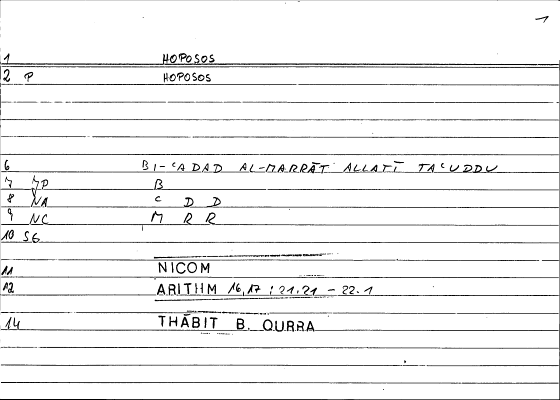 1 HOPOSOS
2 P HOPOSOS
6 BI-ʿADAD AL-MARRĀT ALLATĪ TAʿUDDU
7 JP B
8 NA ʿ D D
9 NC M R R
10 SG
11 NICOM
12 ARITHM 16,17 : 21.21 – 22.1
14 THĀBIT B. QURRA